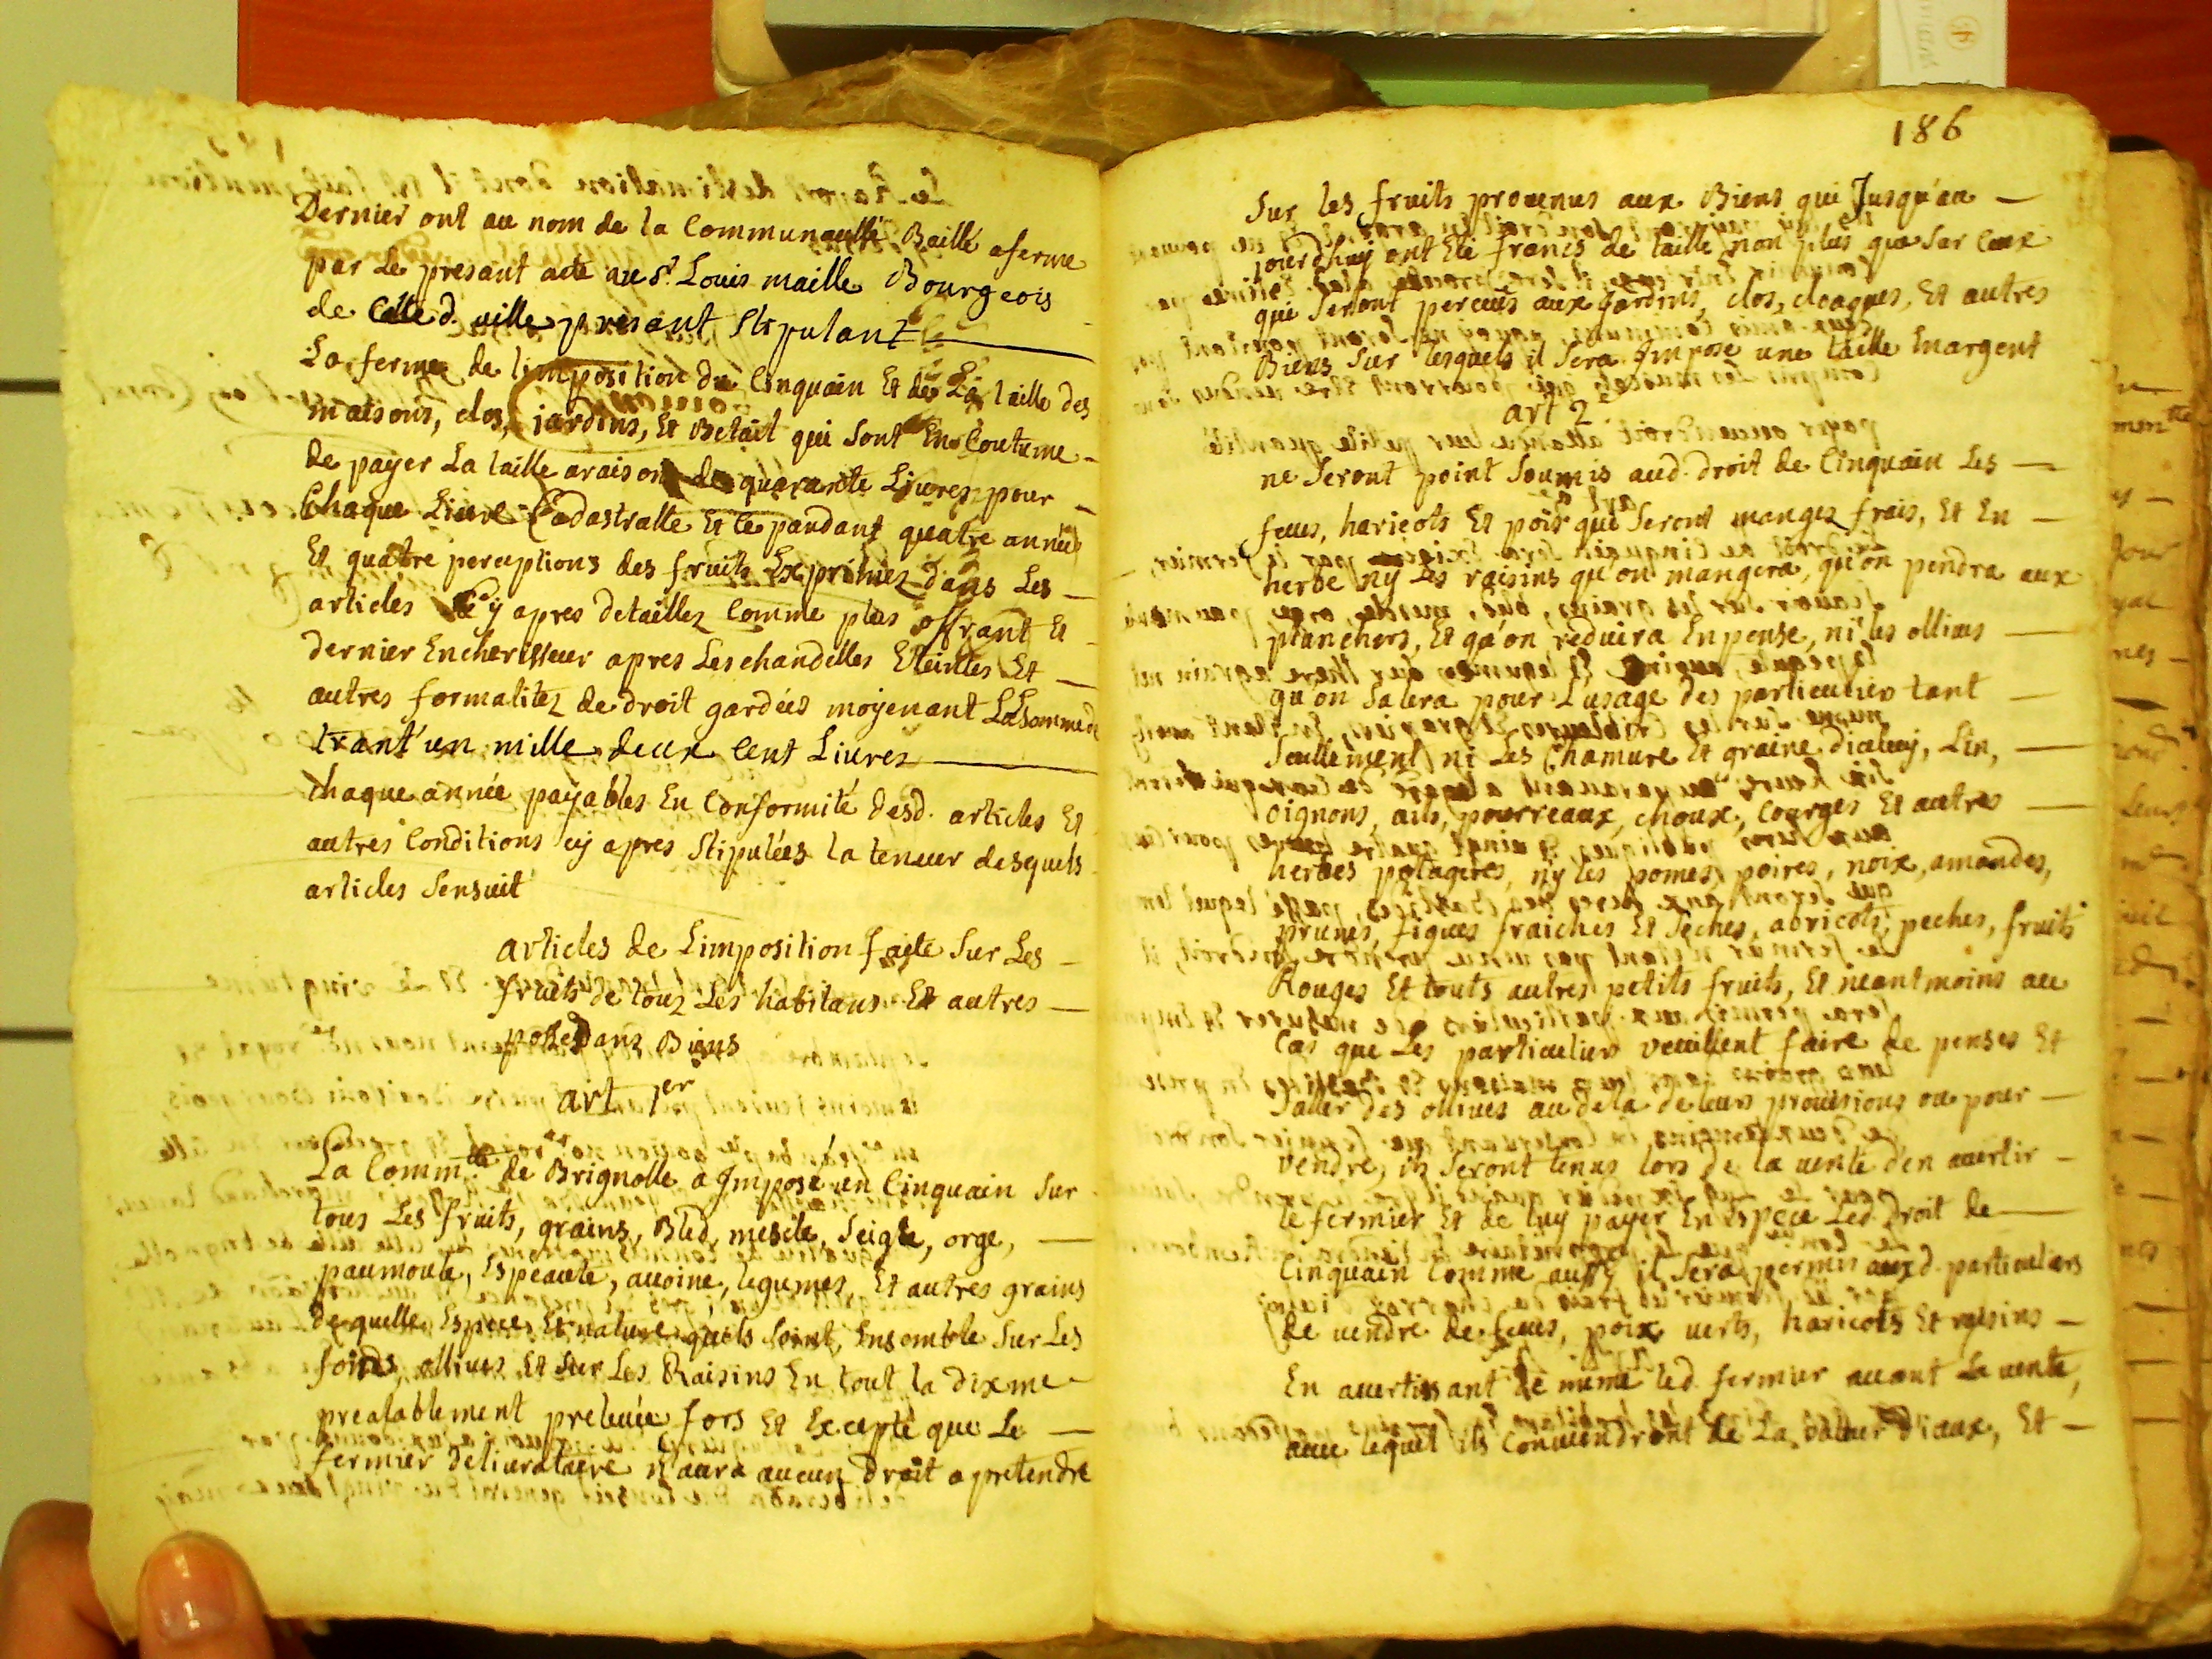 Dernier ont au nom de la Communauté Baillé aferme
par Le presant acte au Sr. Louis maille Bourgeois
de Cette d. ville presant stipulant
La ferme de limposition du Cinquain Et de La taille des
maisons, clos, jardins, Et Betail qui sont En Coutume
de payer La taille araison de quarante Livres pour
Chaque Livre Cadastralle Et Ce pandant quatre années
Et quatre perceptions des fruits Exprimez dans Les
articles Cy apres detaillez Comme plus offrant Et
dernier Encherisseur apres Les chandelles Eteintes Et
autres formalitez de droit gardées moyenant La Somme de
trant'un mille deux Cent Livres
chaque année payables En Conformité desd. articles Et
autres Conditions cy apres Stipulées la teneur desquels
articles sensuit
articles de Limposition faite Sur Les
fruits de touz Les habitans Et autres
possedans Biens
art 1er
La Comm.té de Brignolle a Imposé un Cinquain Sur
tous Les fruits, grains, Bled, mescle, Seigle, orge,
paumoule, Espeaute, avoine, legumes, Et autres grains
de quelle Espece Et nature quils soint, Ensemble Sur Les
foins, ollives Et Sur Les Raisins En tout la dixme
prealablement prelevée fors Et Excepté que Le
fermier delivrataire n'aura aucun droit a pretendre
186
Sur les fruits provenus aux Biens qui Jusqu'au
jourdhuy ont Eté francs de taille non plus que Sur Ceux
qui Seront perceus aux jardins, clos, cloaques, Et autres
Biens Sur lesquels il Sera Imposé une taille Enargent
art 2
ne Seront point Soumis aud. droit de Cinquain Les
feves, haricots Et pois qui Seront mangez frais, Et En
herbe ny Les raisins qu'on mangera, qu'on pendra aux
planchers, Et qu'on reduira En pense, ni les ollives
qu'on Salera pour L'usage des particuliers tant
Seullement ni Les Chamvre Et graine dicelluy, Lin,
oignons, ails, pourreaux, choux, Courges Et autres
herbes potageres, ny les pomes, poires, noix, amandes,
prunes, figues fraiches Et Seches, abricots, peches, fruits
Rouges Et touts autres petits fruits, Et neantmoins au
Cas que Les particuliers veuillent faire de penses Et
Saller des ollives au dela de leurs provisions ou pour
vendre, ils Seront tenus lors de la vente d'en avertir
le fermier Et de luy payer En Espece Led. Droit de
Cinquain Comme aussy il Sera permis auxd. particuliers
de vendre de feves, poix verts, haricots Et raisins
En avertissant de meme led. fermier avant La vente,
avec lequel ils Conviendront de La valleur d'iceux, Et